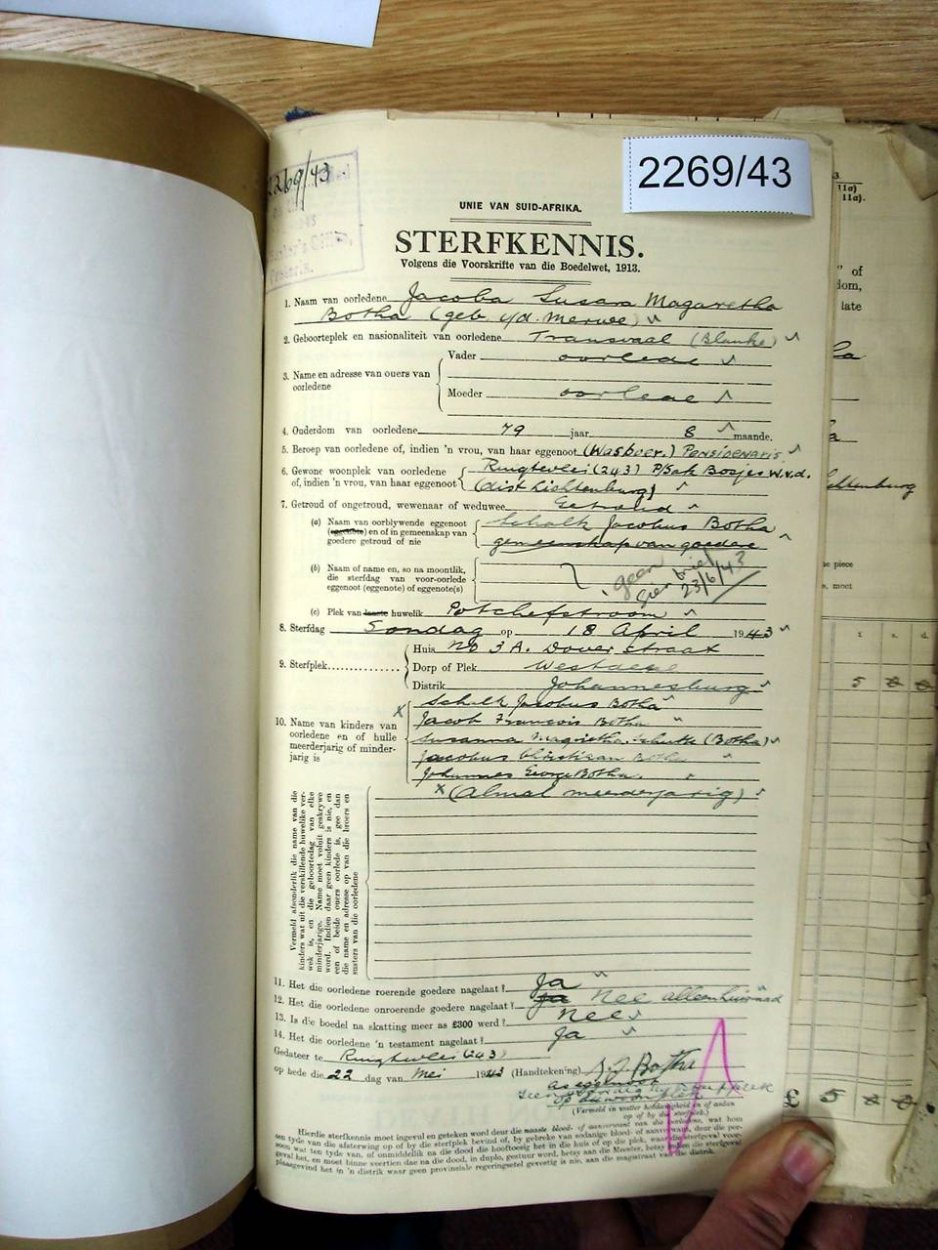 2269/43
2269/43
UNIE VAN SUID-AFRIKA.
STERFKENNIS.
Volgens die Voorskrifte van die Boedelwet, 1913.
1. Naam van oorledene Jacoba Susara Magaretha
Botha (geb v/d. Merwe)
2. Geboorteplek en nasionaliteit van oorledene Transvaal (Blanke)
3. Name en adresse van ouers van oorledene
Vader oorlede
Moeder oorlede
4. Ouderdom van oorledene 79 jaar 8 maande.
5. Beroep van oorledene of, indien 'n vrou, van haar eggenoot (Wasboer.) Pensioenaris
6. Gewone woonplek van oorledene of, indien 'n vrou, van haar eggenoot
Ruigtevlei (243) P/Sak Bosjes W.v.d.
(dist Lichtenburg)
7. Getroud of ongetroud, wewenaar of weduwee Getroud
(a) Naam van oorblywende eggenoot (eggenote) en of in gemeenskap van goedere getroud of nie
Schalk Jacobus Botha
gemeenskap van goedere
(b) Naam of name en, so na moontlik, die sterfdag van voor-oorlede eggenoot (eggenote) of eggenote(s)
geen
Sien brief
23/6/43
(c) Plek van laaste huwelik Potchefstroom
8. Sterfdag Sondag op 18 April 1943
9. Sterfplek
Huis No 3 A. Dover Straat
Dorp of Plek Westdene
Distrik Johannesburg
10. Name van kinders van oorledene en of hulle meerderjarig of minderjarig is
x Schalk Jacobus Botha
Jacob Francois Botha
Susanna Schutte (Botha)
Jacobus Botha
Johannes George Botha.
x (Almal meerderjarig)
Vermeld afsonderlik die name van die
kinders wat uit die verskillende huwelike verwek is, en die geboortedag van elke
minderjarige. Name moet voluit geskrywe
word. Indien daar geen kinders is nie, en
een of beide ouers oorlede is, gee dan
die name en adresse op van die broers en
susters van die oorledene
11. Het die oorledene roerende goedere nagelaat? Ja
12. Het die oorledene onroerende goedere nagelaat? Ja Nee alleen huisraad
13. Is die boedel na skatting meer as £300 werd? Nee
14. Het die oorledene 'n testament nagelaat? Ja
Gedateer te Ruigtevlei (243)
op hede die 22 dag van Mei 1943 (Handtekening) S J Botha
as eggenoot
Hierdie sterfkennis moet ingevul en geteken word deur die naaste bloed- of aanverwant van die oorledene, wat
" of
dom,
late
5
£ 5